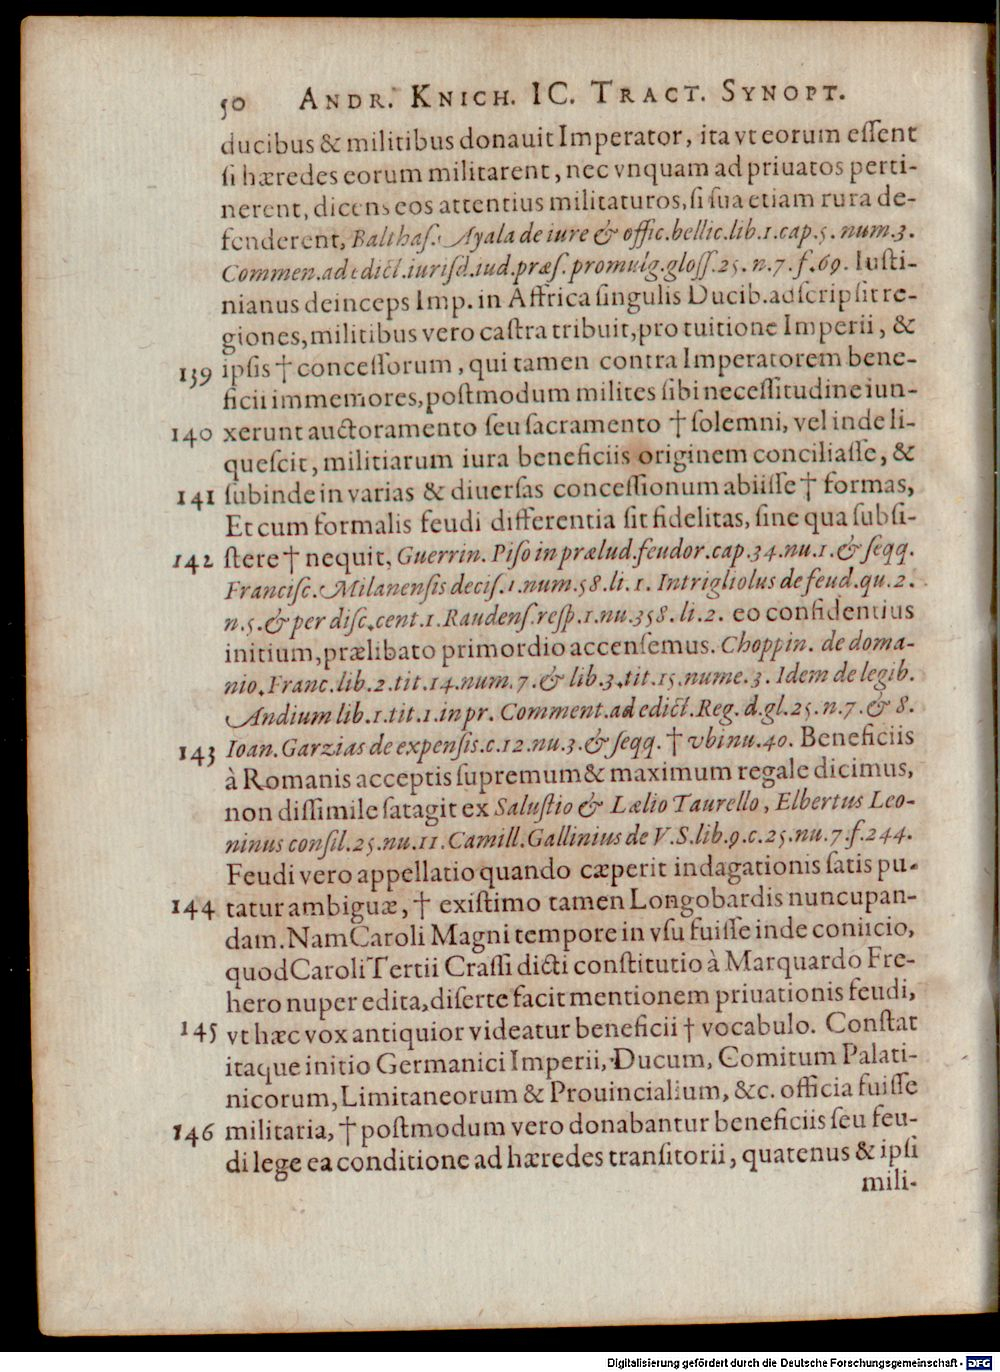 50 ANDR. KNICH. IC. TRACT. SYNOPT.
ducibus & militibus donauit Imperator, ita vt eorum eſſent
ſi hæredes eorum militarent, nec vnquam ad priuatos perti-
nerent, dicens eos attentius militaturos, ſi ſua etiam rura de-
fenderent, Balthaſ. Ayala de iure & offic. bellic. lib. 1. cap. 5. num. 3.
Commen. ad edict. iuriſd. iud. præſ. promulg. gloſſ. 25. n. 7. f. 69. Iuſti-
nianus deinceps Imp. in Affrica ſingulis Ducib. adſcripſit re-
giones, militibus vero caſtra tribuit, pro tuitione Imperii, &
139 ipſis † conceſſorum, qui tamen contra Imperatorem bene-
ficii immemores, poſtmodum milites ſibi neceſſitudine iun-
140 xerunt auctoramento ſeu ſacramento † ſolemni, vel inde li-
queſcit, militiarum iura beneficiis originem conciliaſſe, &
141 ſubinde in varias & diuerſas conceſſionum abiiſſe † formas,
Et cum formalis feudi differentia ſit fidelitas, ſine qua ſubſi-
142 ſtere † nequit, Guerrin. Piſo in prælud. feudor. cap. 34. nu. 1. & ſeqq.
Franciſc. Milanenſis deciſ. 1. num. 58. li. 1. Intrigliolus de feud. qu. 2.
n. 5. & per diſc. cent. 1. Raudenſ. reſp. 1. nu. 358. li. 2. eo confidentius
initium, prælibato primordio accenſemus. Choppin. de doma-
nio. Franc. lib. 2. tit. 14. num. 7. & lib. 3. tit. 15. nume. 3. Idem de legib.
Andium lib. 1. tit. 1. in pr. Comment. ad edict. Reg. d. gl. 25. n. 7. & 8.
143 Ioan. Garzias de expenſis. c. 12. nu. 3. & ſeqq. † vbi nu. 40. Beneficiis
à Romanis acceptis ſupremum & maximum regale dicimus,
non diſſimile ſatagit ex Saluſtio & Lælio Taurello, Elbertus Leo-
ninus conſil. 25. nu. 11. Camill. Gallinius de V. S. lib. 9. c. 25. nu. 7. f. 244.
Feudi vero appellatio quando cæperit indagationis ſatis pu-
144 tatur ambiguæ, † exiſtimo tamen Longobardis nuncupan-
dam. Nam Caroli Magni tempore in vſu fuiſſe inde coniicio,
quod Caroli Tertii Craſſi dicti conſtitutio à Marquardo Fre-
hero nuper edita, diſerte facit mentionem priuationis feudi,
145 vt hæc vox antiquior videatur beneficii † vocabulo. Conſtat
itaque initio Germanici Imperii, Ducum, Comitum Palati-
nicorum, Limitaneorum & Prouincialium, &c. officia fuiſſe
146 militaria, † poſtmodum vero donabantur beneficiis ſeu feu-
di lege ea conditione ad hæredes tranſitorii, quatenus & ipſi
mili-
Digitalisierung gefördert durch die Deutsche Forschungsgemeinschaft - DFG